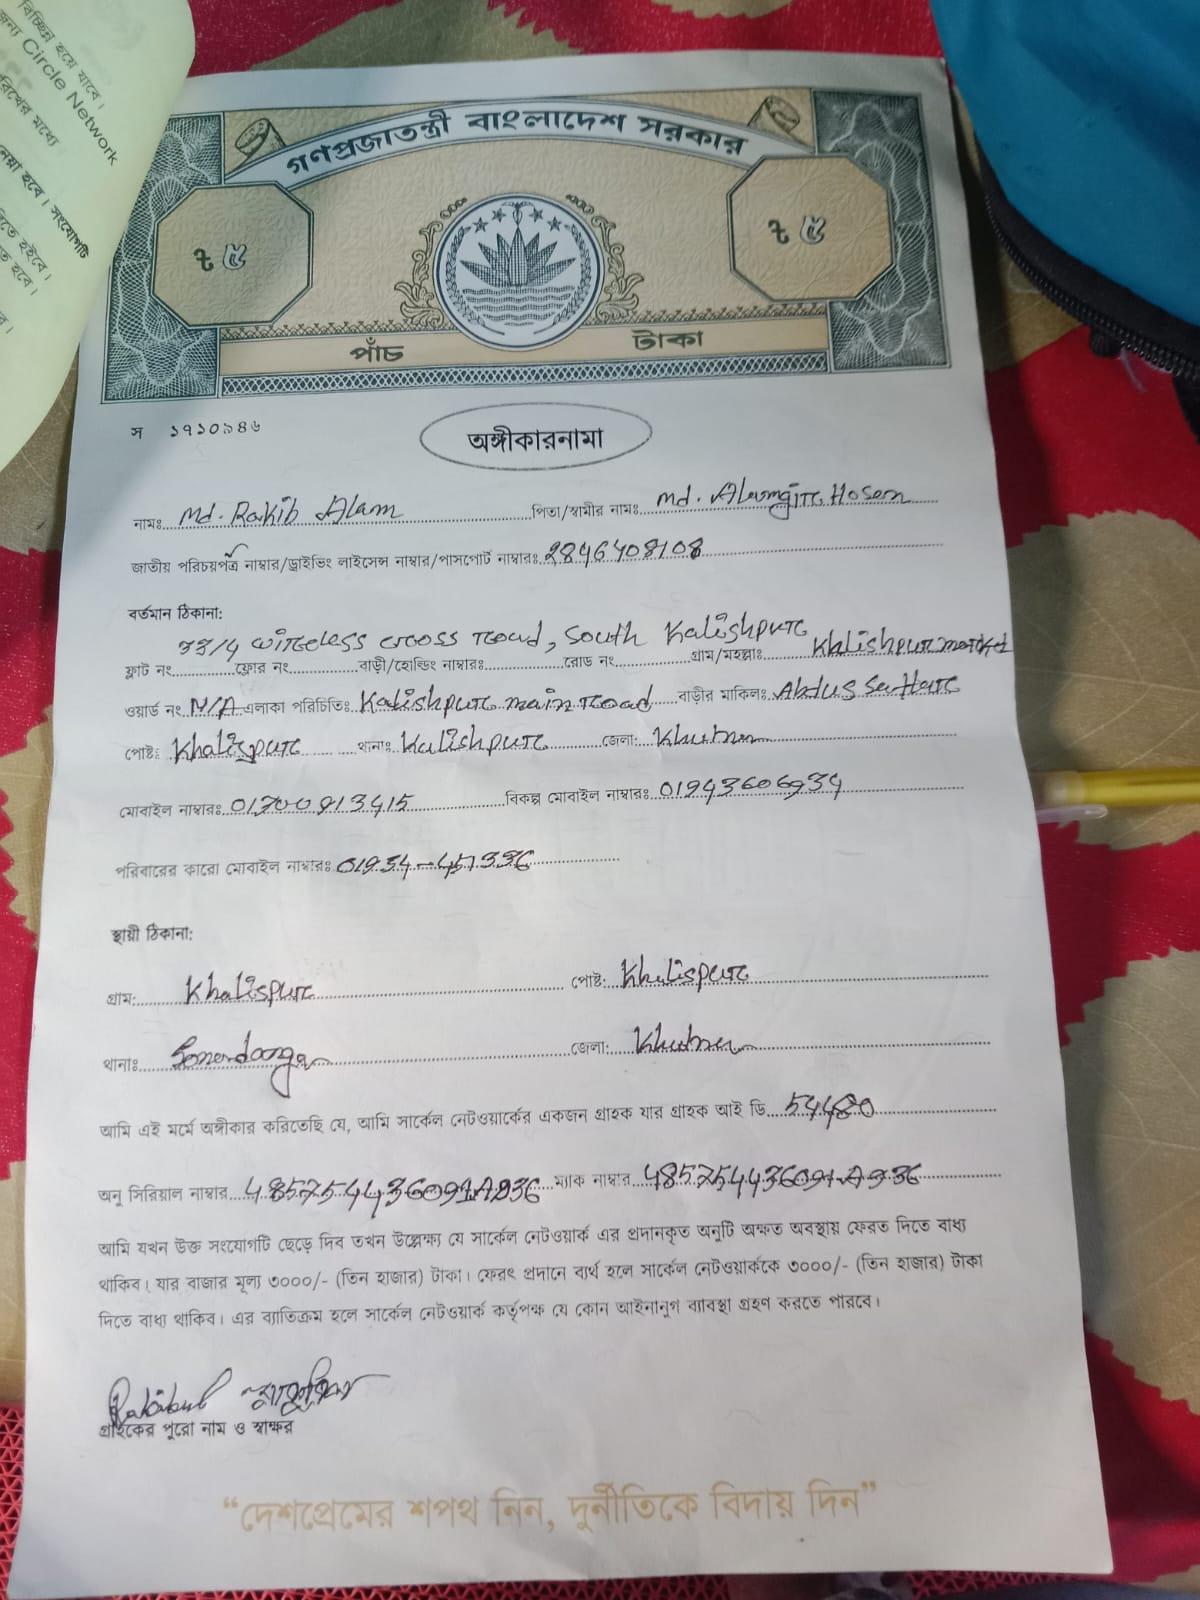 বিচ্ছিন্ন হয়ে যাবে।
জন্য Circle Network
রিখের মধ্যে
নেয়া হবে। সংযোগটি
তে হইবে।
ত হবে।
গণপ্রজাতন্ত্রী বাংলাদেশ সরকার
৳ ৫ ৳ ৫
পাঁচ টাকা
স ১৭১০৯৪৬
অঙ্গীকারনামা
নামঃ Md. Rakib Alam পিতা/স্বামীর নামঃ Md. Alamgir Hosen
জাতীয় পরিচয়পত্র নাম্বার/ড্রাইভিং লাইসেন্স নাম্বার/পাসপোর্ট নাম্বারঃ 2846408108
বর্তমান ঠিকানা:
wireless cross road, South Kalishpur
ফ্লাট নং ফ্লোর নং বাড়ী/হোল্ডিং নাম্বারঃ রোড নং গ্রাম/মহল্লাঃ Khalishpur market
ওয়ার্ড নং N/A এলাকা পরিচিতিঃ Kalishpur main road বাড়ীর মাকিলঃ Abdus Sattar
পোষ্টঃ Khalispur থানাঃ Kalishpur জেলা: Khulna
মোবাইল নাম্বারঃ বিকল্প মোবাইল নাম্বারঃ
পরিবারের কারো মোবাইল নাম্বারঃ
স্থায়ী ঠিকানা:
গ্রাম: Khalispur পোষ্ট: Khalispur
থানাঃ Sonadanga জেলা: Khulna
আমি এই মর্মে অঙ্গীকার করিতেছি যে, আমি সার্কেল নেটওয়ার্কের একজন গ্রাহক যার গ্রাহক আই ডি 54480
অনু সিরিয়াল নাম্বার ম্যাক নাম্বার
আমি যখন উক্ত সংযোগটি ছেড়ে দিব তখন উল্লেক্ষ্য যে সার্কেল নেটওয়ার্ক এর প্রদানকৃত অনুটি অক্ষত অবস্থায় ফেরত দিতে বাধ্য
থাকিব। যার বাজার মূল্য ৩০০০/- (তিন হাজার) টাকা। ফেরৎ প্রদানে ব্যর্থ হলে সার্কেল নেটওয়ার্ককে ৩০০০/- (তিন হাজার) টাকা
দিতে বাধ্য থাকিব। এর ব্যাতিক্রম হলে সার্কেল নেটওয়ার্ক কর্তৃপক্ষ যে কোন আইনানুগ ব্যাবস্থা গ্রহণ করতে পারবে।
গ্রাহকের পুরো নাম ও স্বাক্ষর
“দেশপ্রেমের শপথ নিন, দুর্নীতিকে বিদায় দিন”